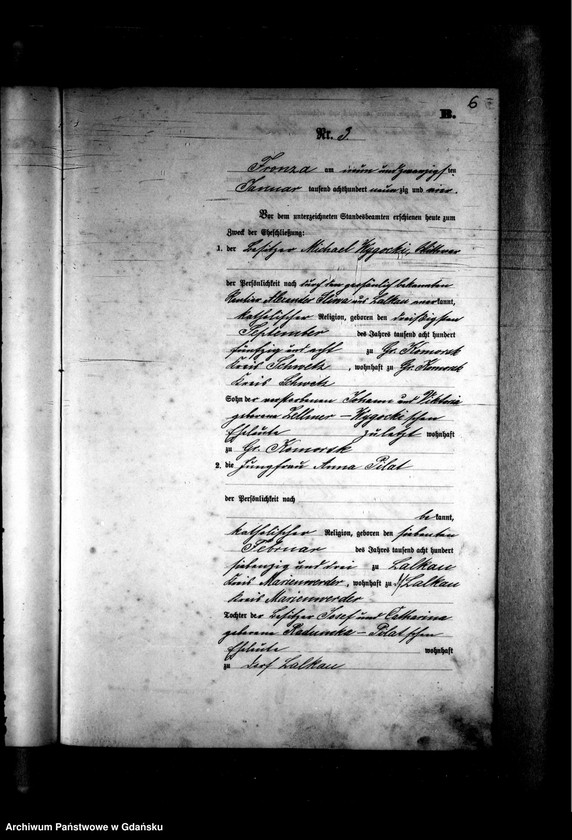 6
B.
Nr. 3.
Fronza am neun und zwanzigsten
Januar tausend achthundert neunzig und vier.
Vor dem unterzeichneten Standesbeamten erschienen heute zum
Zweck der Eheschließung:
1. der Besitzer Michael Wygocki, Wittwer
der Persönlichkeit nach durch den persönlich bekannten
Rentier Alexander aus Lalkau anerkannt,
katholischer Religion, geboren den dreißigsten
September des Jahres tausend acht hundert
fünfzig und acht zu Gr. Komorsk
Kreis Schwetz, wohnhaft zu Gr. Komorsk
Kreis Schwetz
Sohn der verstorbenen Johann und Viktoria
geborene Zellmer - Wygocki'schen
Eheleute zuletzt wohnhaft
zu Gr. Komorsk
2. die Jungfrau Anna Pilat
der Persönlichkeit nach
bekannt,
katholischer Religion, geboren den siebenten
Februar des Jahres tausend acht hundert
siebenzig und drei zu Lalkau
Kreis Marienwerder, wohnhaft zu Lalkau
Kreis Marienwerder
Tochter der Besitzer Josef und Catharina
geborene - Pilat'schen
Eheleute wohnhaft
zu Dorf Lalkau
Archiwum Państwowe w Gdańsku